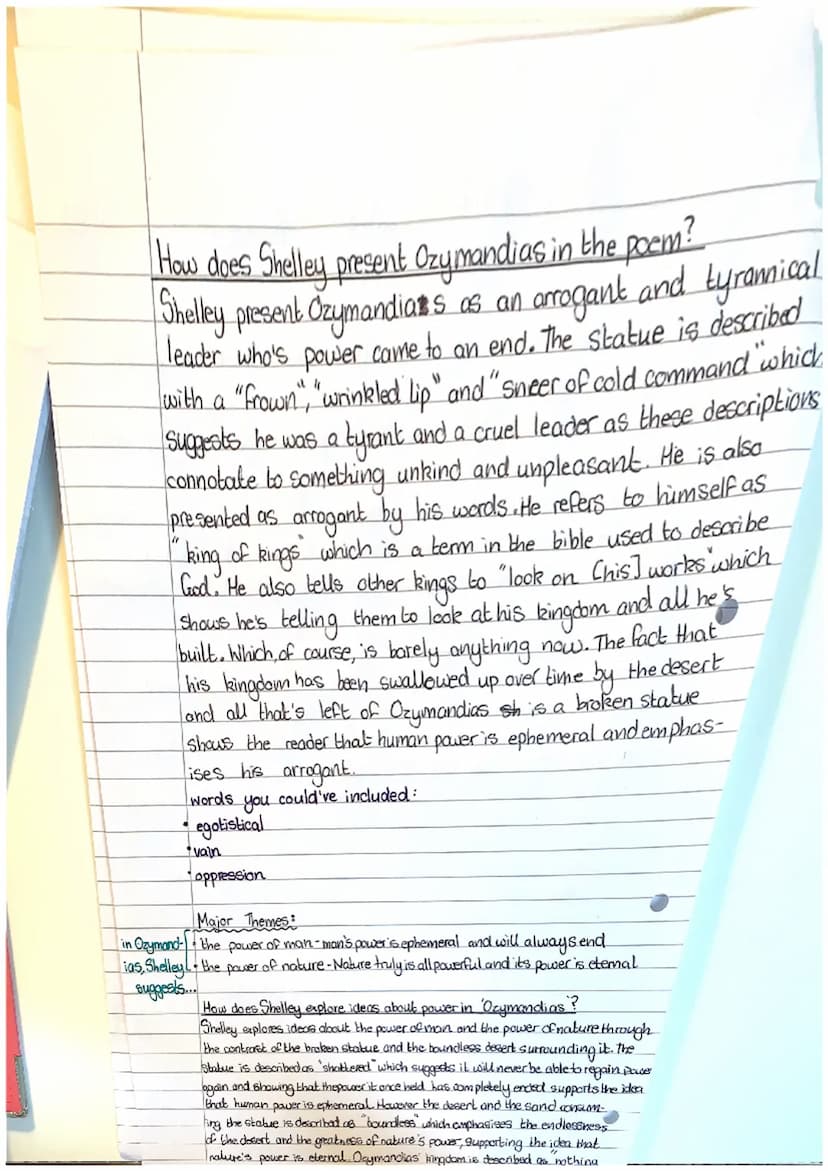 How does Shelley present Ozymandias in the poem?
Shelley present Ozymandias as an arrogant and tyrannical
leader who's power came to an end. The statue is described
with a "frown", "wrinkled lip" and "sneer of cold command" which
suggests he was a tyrant and a cruel leader as these descriptions
connotate to something unkind and unpleasant. He is also
presented as arrogant by his words. He refers to himself as
"king of kings" which is a term in the bible used to describe
God. He also tells other kings to "look on [his] works" which
shows he's telling them to look at his kingdom and all he's
built. Which, of course, is barely anything now. The fact that
his kingdom has been swallowed up over time by the desert
and all that's left of Ozymandias is a broken statue
shows the reader that human power is ephemeral and emphas-
ises his arrogant.
words you could've included:
• egotistical
• vain
• oppression
Major Themes:
in Ozymand-
ias, Shelley
suggests...
• the power of man - man's power is ephemeral and will always end
• the power of nature - Nature truly is all powerful and its power is eternal
How does Shelley explore ideas about power in 'Ozymandias'?
Shelley explores ideas about the power of man and the power of nature through
the contrast of the broken statue and the boundless desert surrounding it. The
statue is described as "shattered" which suggests it will never be able to regain power
again and showing that the power it once held has completely ended supports the idea
that human power is ephemeral. However the desert and the sand consum-
ing the statue is described as "boundless" which emphasises the endlessness
of the desert and the greatness of nature's power, supporting the idea that
nature's power is eternal. Ozymandias' kingdom is described as "nothing